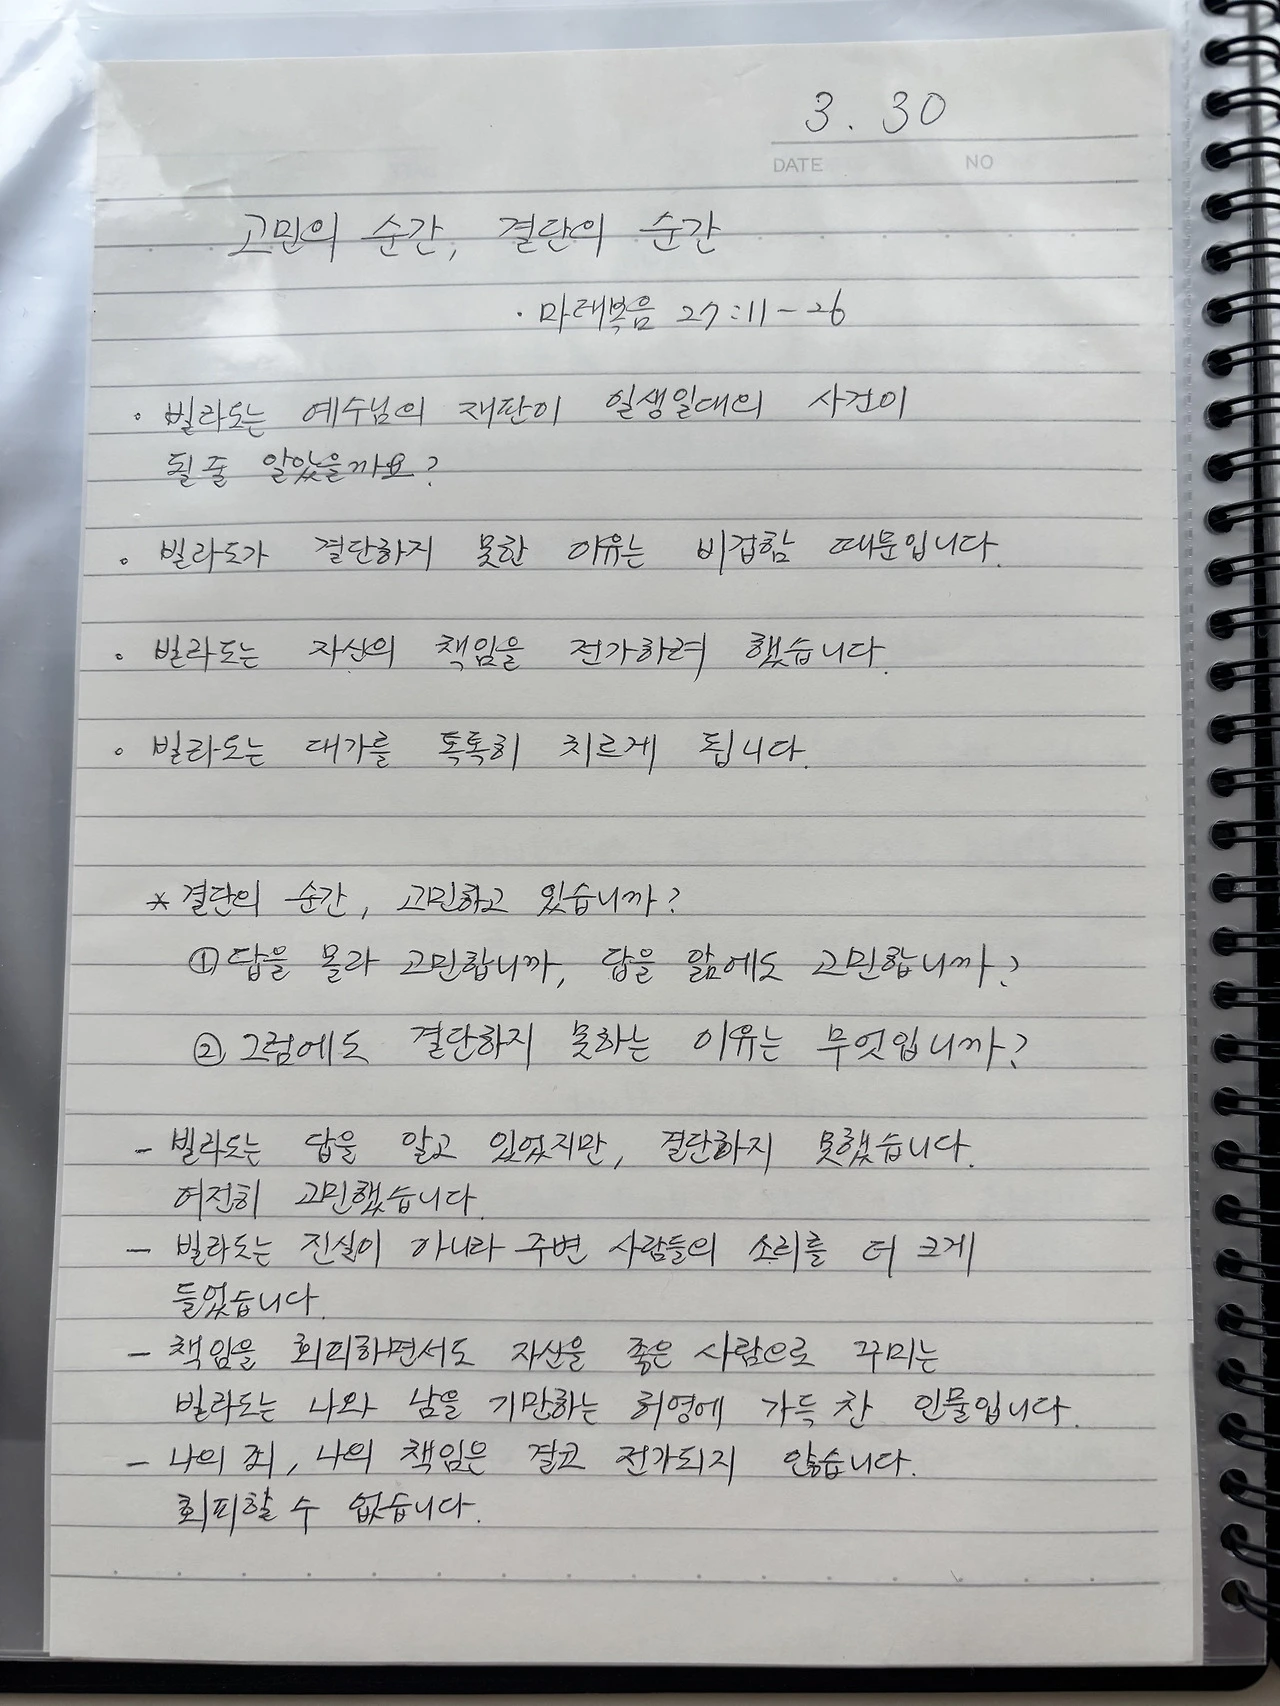 3. 30
DATE NO
고민의 순간, 결단의 순간
· 마태복음 27:11-26
• 빌라도는 예수님의 재판이 일생일대의 사건이
될 줄 알았을까요?
• 빌라도가 결단하지 못한 이유는 비겁함 때문입니다.
• 빌라도는 자신의 책임을 전가하려 했습니다.
• 빌라도는 대가를 톡톡히 치르게 됩니다.
* 결단의 순간, 고민하고 있습니까?
① 답을 몰라 고민합니까, 답을 앎에도 고민합니까?
② 그럼에도 결단하지 못하는 이유는 무엇입니까?
- 빌라도는 답을 알고 있었지만, 결단하지 못했습니다.
여전히 고민했습니다.
- 빌라도는 진실이 아니라 주변 사람들의 소리를 더 크게
들었습니다.
- 책임을 회피하면서도 자신을 좋은 사람으로 꾸미는
빌라도는 나와 남을 기만하는 허영에 가득 찬 인물입니다.
- 나의 죄, 나의 책임은 결코 전가되지 않습니다.
회피할 수 없습니다.